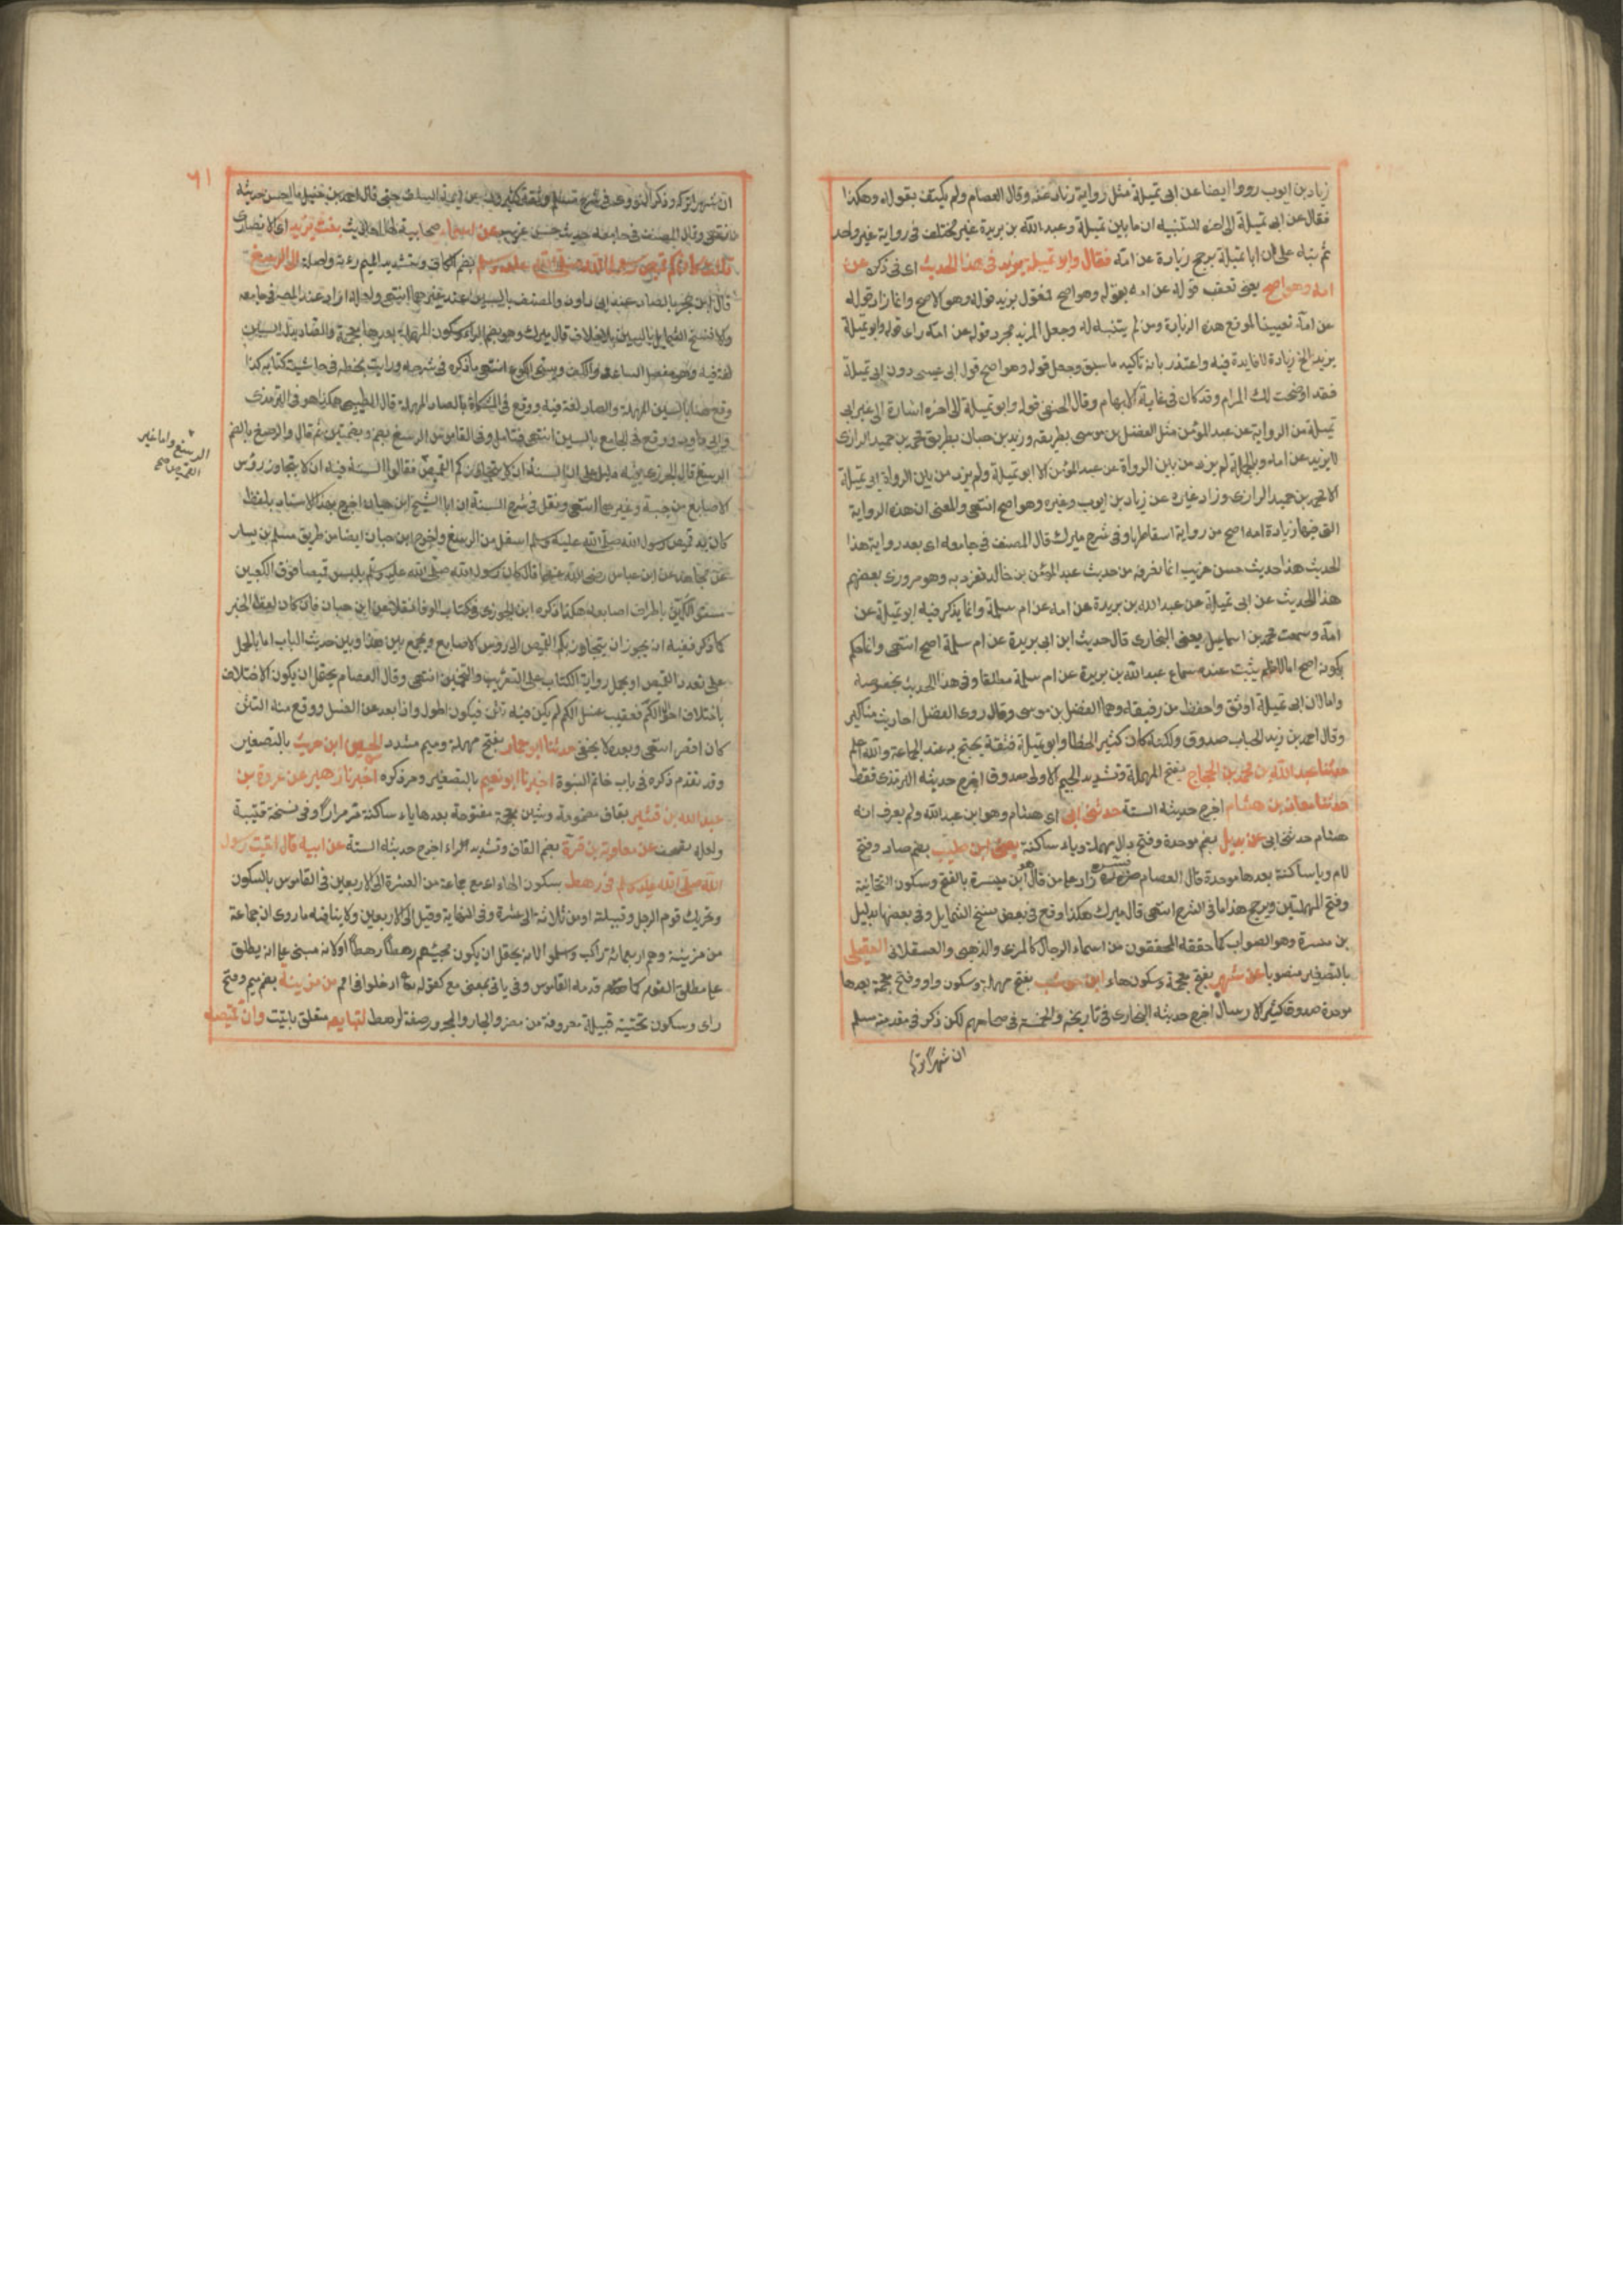 زياد بن ايوب رووا ايضا عن ابى تميلة مثل رواية زياد عنه وقال العصام ولم يكتف بقوله وهكذا
فقال عن ابى تميلة الى اخره للتنبيه ان ما بين تميلة وعبد الله بن بريدة غير مختلف فى رواية غير واحد
ثم نبه على ان ابا تميلة يرجح زيادة عن امه فقال وابو تميلة يزيد فى هذا الحديث اى فى ذكره عن
امه وهو اصح يعنى تعقب قوله عن امه بقوله وهو اصح فقول يزيد قوله وهو الاصح وانما زاد قوله
عن امه تعيينا لموقع هذه الزيادة ومن لم يتنبه له وجعل المزيد مجرد قوله عن امه راى قوله وابو تميلة
يزيد الخ زيادة لا فايدة فيه واعتذر بانه تاكيد ما سبق وجعل قوله وهو اصح قول ابى عيسى دون ابى تميلة
فقد اوضحت لك المرام وقد كان فى غاية الابهام وقال الحنفى قوله وابو تميلة الى اخره اشارة الى غير ابى
تميلة من الرواية عن عبد المؤمن مثل الفضل بن موسى بطريقه وزيد بن حبان بطريق محمد بن حميد الرازى
لا يزيد عن امه وبالجملة لم يزد من بين الرواة عن عبد المؤمن الا ابو تميلة ولم يزد من بين الرواة ابى تميلة
الا محمد بن حميد الرازى وزاد غيره عن زياد بن ايوب وغيره وهو اصح انتهى والمعنى ان هذه الرواية
التى فيها زيادة امه اصح من رواية اسقاطها وفى شرح ميرك قال المصنف فى جامعه اى بعد رواية هذا
الحديث هذا حديث حسن غريب انما نعرفه من حديث عبد المؤمن بن خالد تفرد به وهو مروزى بعضهم
هذا الحديث عن ابى تميلة عن عبد الله بن بريدة عن امه عن ام سلمة وانما يذكر فيه ابو تميلة عن
امه وسمعت محمد بن اسماعيل يعنى البخارى قال حديث ابن ابى بريدة عن ام سلمة اصح انتهى وانما حكم
بكونه اصح اما لانه لم يثبت عنده سماع عبد الله بن بريدة عن ام سلمة مطلقا وفى هذا الحديث بخصوصه
واما لان ابى تميلة اوثق واحفظ من رفيقه وهما الفضل بن موسى وقال روى الفضل احاديث مناكير
وقال احمد بن زيد الحباب صدوق ولكنه كان كثير الخطا وابو تميلة فثقة يحتج به عند الجماعة والله اعلم
حدثنا عبد الله بن محمد بن الحجاج بفتح المهملة وتشديد الجيم الاولى صدوق اخرج حديثه الترمذى فقط
حدثنا معاذ بن هشام اخرج حديثه الستة حدثنى ابى اى هشام وهو ابن عبد الله ولم يعرف انه
هشام حدثنى ابى عن بديل بضم موحدة وفتح دال مهملة وياء ساكنة يعنى ابن صليب بضم صاد وفتح
لام وياء ساكنة بعدها موحدة قال العصام زاد على من قال ابن ميسرة بالفتح وسكون التحانية
وفتح المهملتين ويرجح هذا ما فى الشرح انتهى قال ميرك هكذا وقع فى بعض نسخ الشمايل وفى بعضها بديل
بن ميسرة وهو الصواب كما حققه المحققون من اسماء الرجال كالمزى والذهبى والعسقلانى العقيلى
بالتصغير منصوبا عن شهر بفتح معجمة وسكون هاء ابن حوشب بفتح مهملة وسكون واو وفتح معجمة بعدها
موحدة صدوق كثير الارسال اخرج حديثه البخارى فى تاريخه والخمسة فى صحاحهم لكن ذكر فى مقدمة مسلم
ان شهرا تركوه
٦١
ان شهرا تركوه وذكر النووى فى شرح مسلم وثقه كثيرون من ائمة السلف حتى قال احمد بن حنبل ما احسن حديثه
انتهى وقال المصنف فى جامعه حديث حسن غريب عن اسماء صحابية لها احاديث بنت يزيد اى الانصارى
قالت كان كم قميص رسول الله صلى الله عليه وسلم بضم الكاف وتشديد الميم اى واصله الى الرسغ
قال ابن حجر بالصاد عند ابى داود والمصنف بالسين عند غيرهما انتهى ولعله اراد عند المصنف فى جامعه
والا فنسخ الشمايل بالسين بلا خلاف قال ميرك وهو بضم الراء وسكون المهملة بعدها معجمة والصاد بدل السين
لغة فيه وهو مفصل الساعد والكف ويسمى الكوع انتهى ما ذكره فى شرحه ورايت بخطه فى حاشية كتابه كذا
وقع هنا بالسين المهملة والصاد لغة فيه ووقع فى المشكاة بالصاد المهملة قال الطيبى هكذا هو فى الترمذى
وابى داود ووقع فى الجامع بالسين انتهى فتامل وفى القاموس الرسغ بضم وبضمتين ثم قال والرصغ بالضم
الرسغ قال الجزرى فيه دليل على ان السنة ان لا يتجاوز كم القميص فقالوا السنة فيه ان لا يتجاوز رؤس
الاصابع من جبة وغيرها انتهى ونقل فى شرح السنة ان ابا الشيخ ابن حبان اخرج بهذا الاسناد بلفظ
كان يد قميص رسول الله صلى الله عليه وسلم اسفل من الرسغ واخرج ابن حبان ايضا من طريق مسلم بن يسار
عن مجاهد عن ابن عباس رضى الله عنهما قال كان رسول الله صلى الله عليه وسلم يلبس قميصا فوق الكعبين
مستوى الكمين باطراف اصابعه هكذا ذكره ابن الجوزى فى كتاب الوفا نقلا عن ابن حبان فان كان لفظ الخبر
كما ذكر ففيه انه يجوز ان يتجاوز بكم القميص الى رؤس الاصابع ويجمع بين هذا وبين حديث الباب اما بالحمل
على تعدد القميص او بحمل رواية الكتاب على التقريب والتخمين انتهى وقال العصام يحتمل ان يكون الاختلاف
باختلاف احوال الكم فعقيب غسل الكم لم يكن فيه تثن فيكون اطول واذا بعد عن الغسل ووقع منه التثنى
كان اقصر انتهى وبعده لا يخفى حدثنا ابو عمار بفتح مهملة وميم مشدد الحسين ابن حريث بالتصغير
وقد تقدم ذكره فى باب خاتم النبوة اخبرنا ابو نعيم بالتصغير ومر ذكره اخبرنا زهير عن عروة بن
عبد الله بن قشير بقاف مضمومة وشين معجمة مفتوحة بعدها ياء ساكنة مر مرارا وفى نسخة قتيبة
ولعله تصحيف عن معاوية بن قرة بضم القاف وتشديد الراء اخرج حديثه الستة عن ابيه قال اتيت رسول
الله صلى الله عليه وسلم فى رهط بسكون الهاء اى مع جماعة من العشرة الى الاربعين فى القاموس بالسكون
وتحريك قوم الرجل وقبيلته او من ثلاثة الى عشرة وفى النهاية وقيل الى الاربعين ولا ينافيه ما روى ان جماعة
من مزينة وهم اربعمائة راكب وسلموا لانه يحتمل ان يكون مجيئهم رهطا رهطا او لانه مبنى على ان يطلق
على مطلق القوم كما قدمه القاموس وفى ياتى بمعنى مع كقوله تعا ادخلوا فى امم من مزينة بضم ميم وفتح
زاى وسكون تحتية قبيلة معروفة من مضر والجار والمجرور صفة لرهط لنبايعه متعلق باتيت وان قميصه
الرسغ واما غير
القميص صح